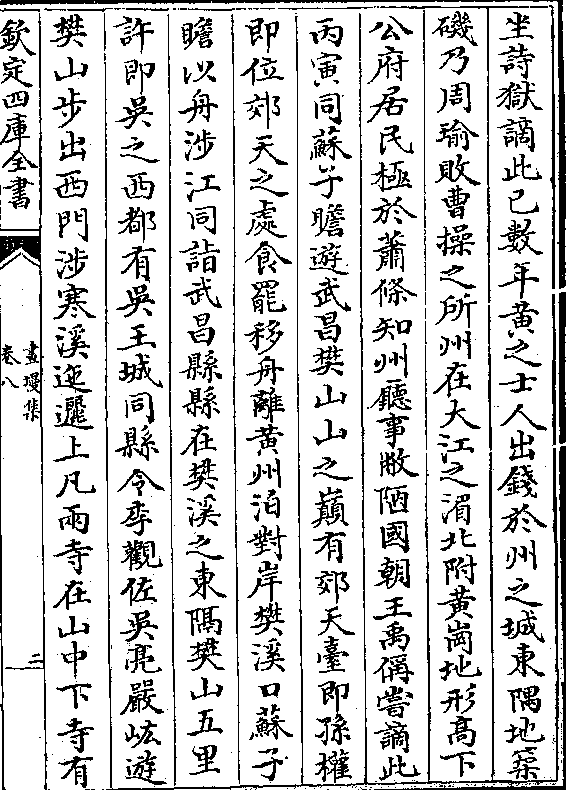 坐詩獄謫此已數年黃之士人出錢於州之城東隅地築
磯乃周瑜敗曹操之所州在大江之湄北附黃崗地形高下
公府居民極於蕭條知州廳事敝陋國朝王禹偁嘗謫此
丙寅同蘇子瞻遊武昌樊山山之巔有郊天臺即孫權
即位郊天之處食罷移舟離黃州泊對岸樊溪口蘇子
瞻以舟涉江同詣武昌縣縣在樊溪之東隔樊山五里
許即吳之西都有吳王城同縣令李觀佐吳亮嚴岏遊
樊山步出西門涉寒溪迤邐上凡兩寺在山中下寺有
欽定四庫全書
畫墁集
卷八
二